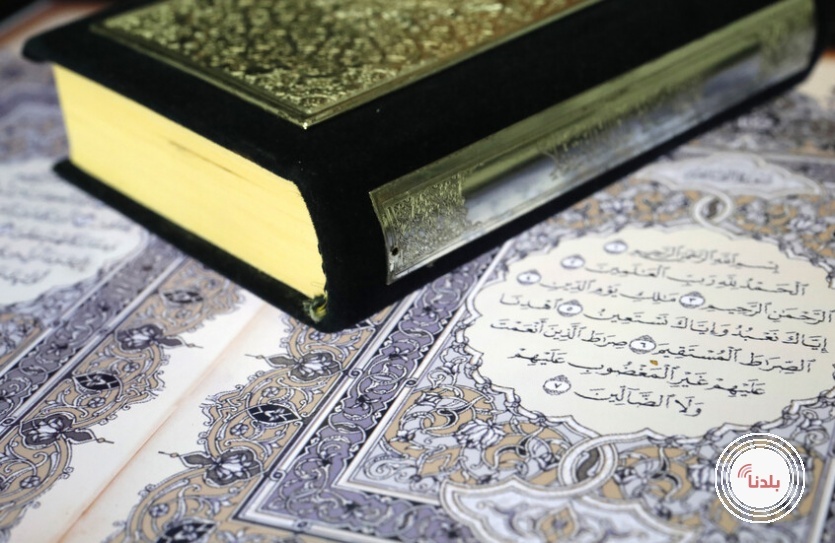 بِسْمِ اللَّهِ الرَّحْمَٰنِ الرَّحِيمِ ١
الْحَمْدُ لِلَّهِ رَبِّ الْعَالَمِينَ ٢
الرَّحْمَٰنِ الرَّحِيمِ ٣ مَالِكِ يَوْمِ الدِّينِ ٤
إِيَّاكَ نَعْبُدُ وَإِيَّاكَ نَسْتَعِينُ ٥ اهْدِنَا
الصِّرَاطَ الْمُسْتَقِيمَ ٦ صِرَاطَ الَّذِينَ أَنْعَمْتَ
عَلَيْهِمْ غَيْرِ الْمَغْضُوبِ عَلَيْهِمْ
وَلَا الضَّالِّينَ ٧
بلدنا